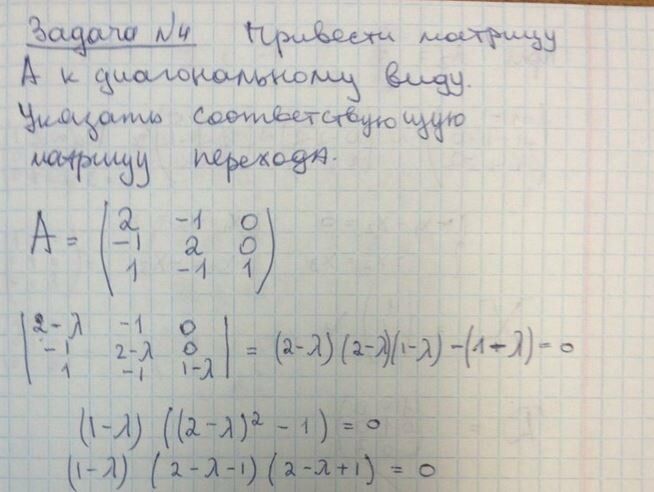 Задача №4 Привести матрицу
А к диагональному виду.
Указать соответствующую
матрицу перехода.
A = ( 2 -1 0
-1 2 0
1 -1 1 )
| 2-λ -1 0
-1 2-λ 0
1 -1 1-λ | = (2-λ)(2-λ)(1-λ) - (1-λ) = 0
(1-λ) ((2-λ)² - 1) = 0
(1-λ) (2-λ-1) (2-λ+1) = 0